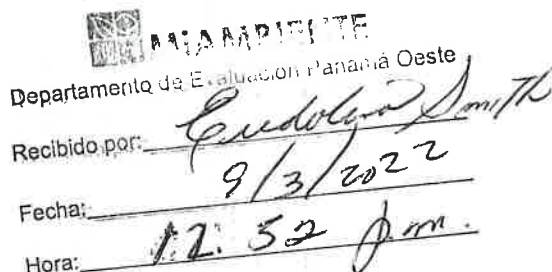 MIAMBIENTE
Departamento de Evaluación Panamá Oeste
Recibido por: Smith
Fecha: 9/3/2022
Hora: 12:52 p.m.